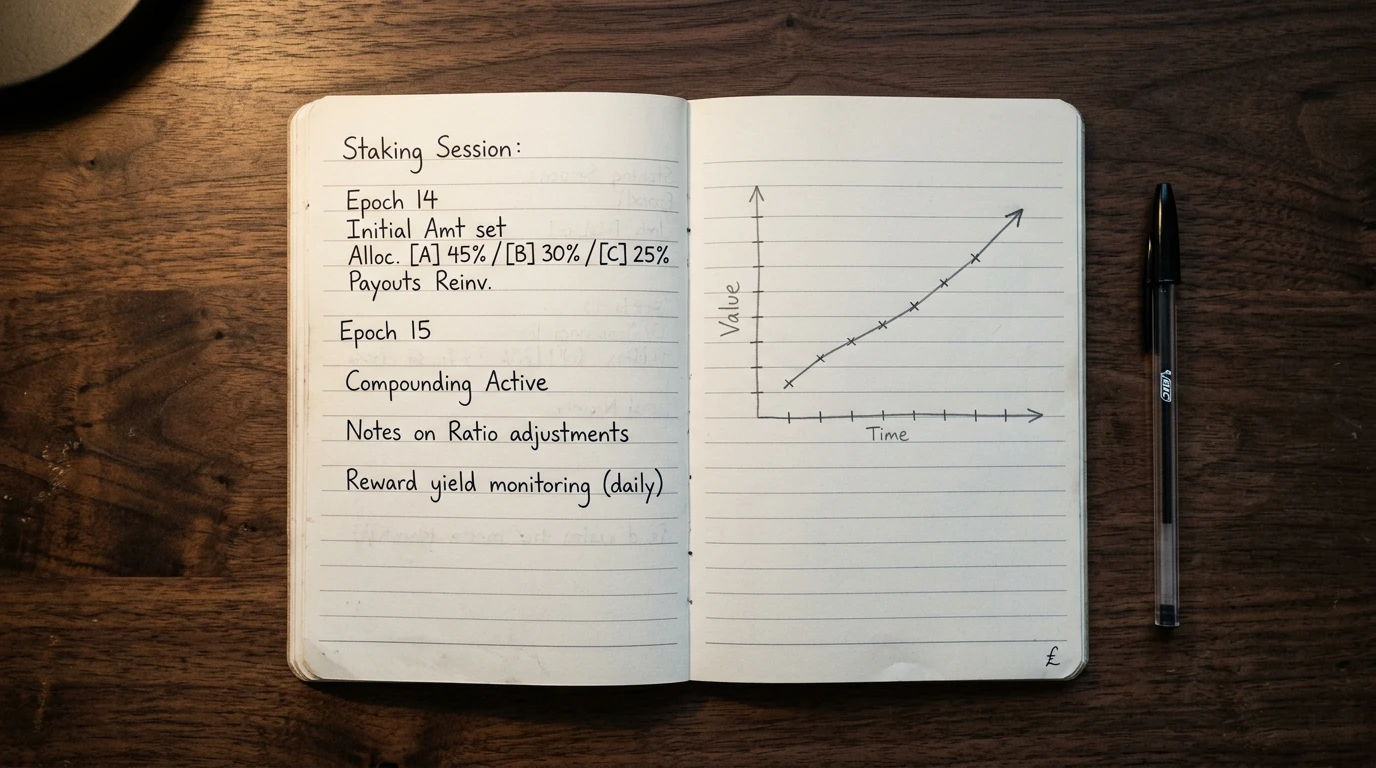 Staking Session:
Epoch 14
Initial Amt set
Alloc. [A] 45% / [B] 30% / [C] 25%
Payouts Reinv.
Epoch 15
Compounding Active
Notes on Ratio adjustments
Reward yield monitoring (daily)
Value
Time
£
BIC